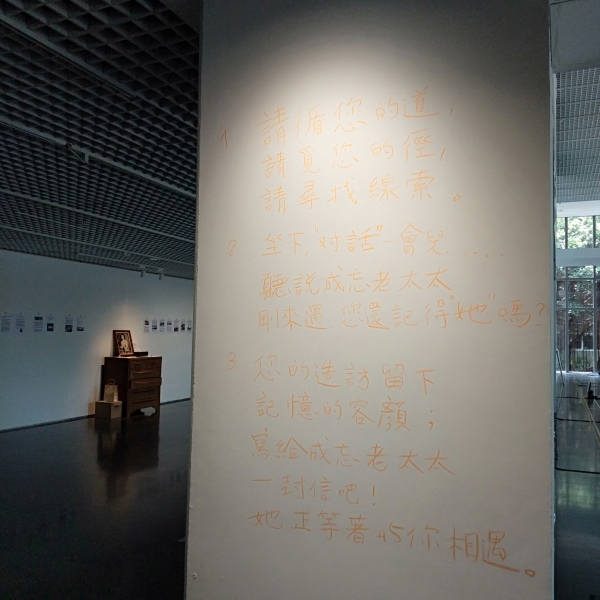 1. 請循您的道,
請覓您的徑,
請尋找線索。
2. 坐下,"对話"一會兒.....
聽說成忘老太太
剛來過 您還記得"她"嗎?
3. 您的造訪留下
記憶的容顏;
寫給成忘老太太
一封信吧!
她正等著与你相遇。